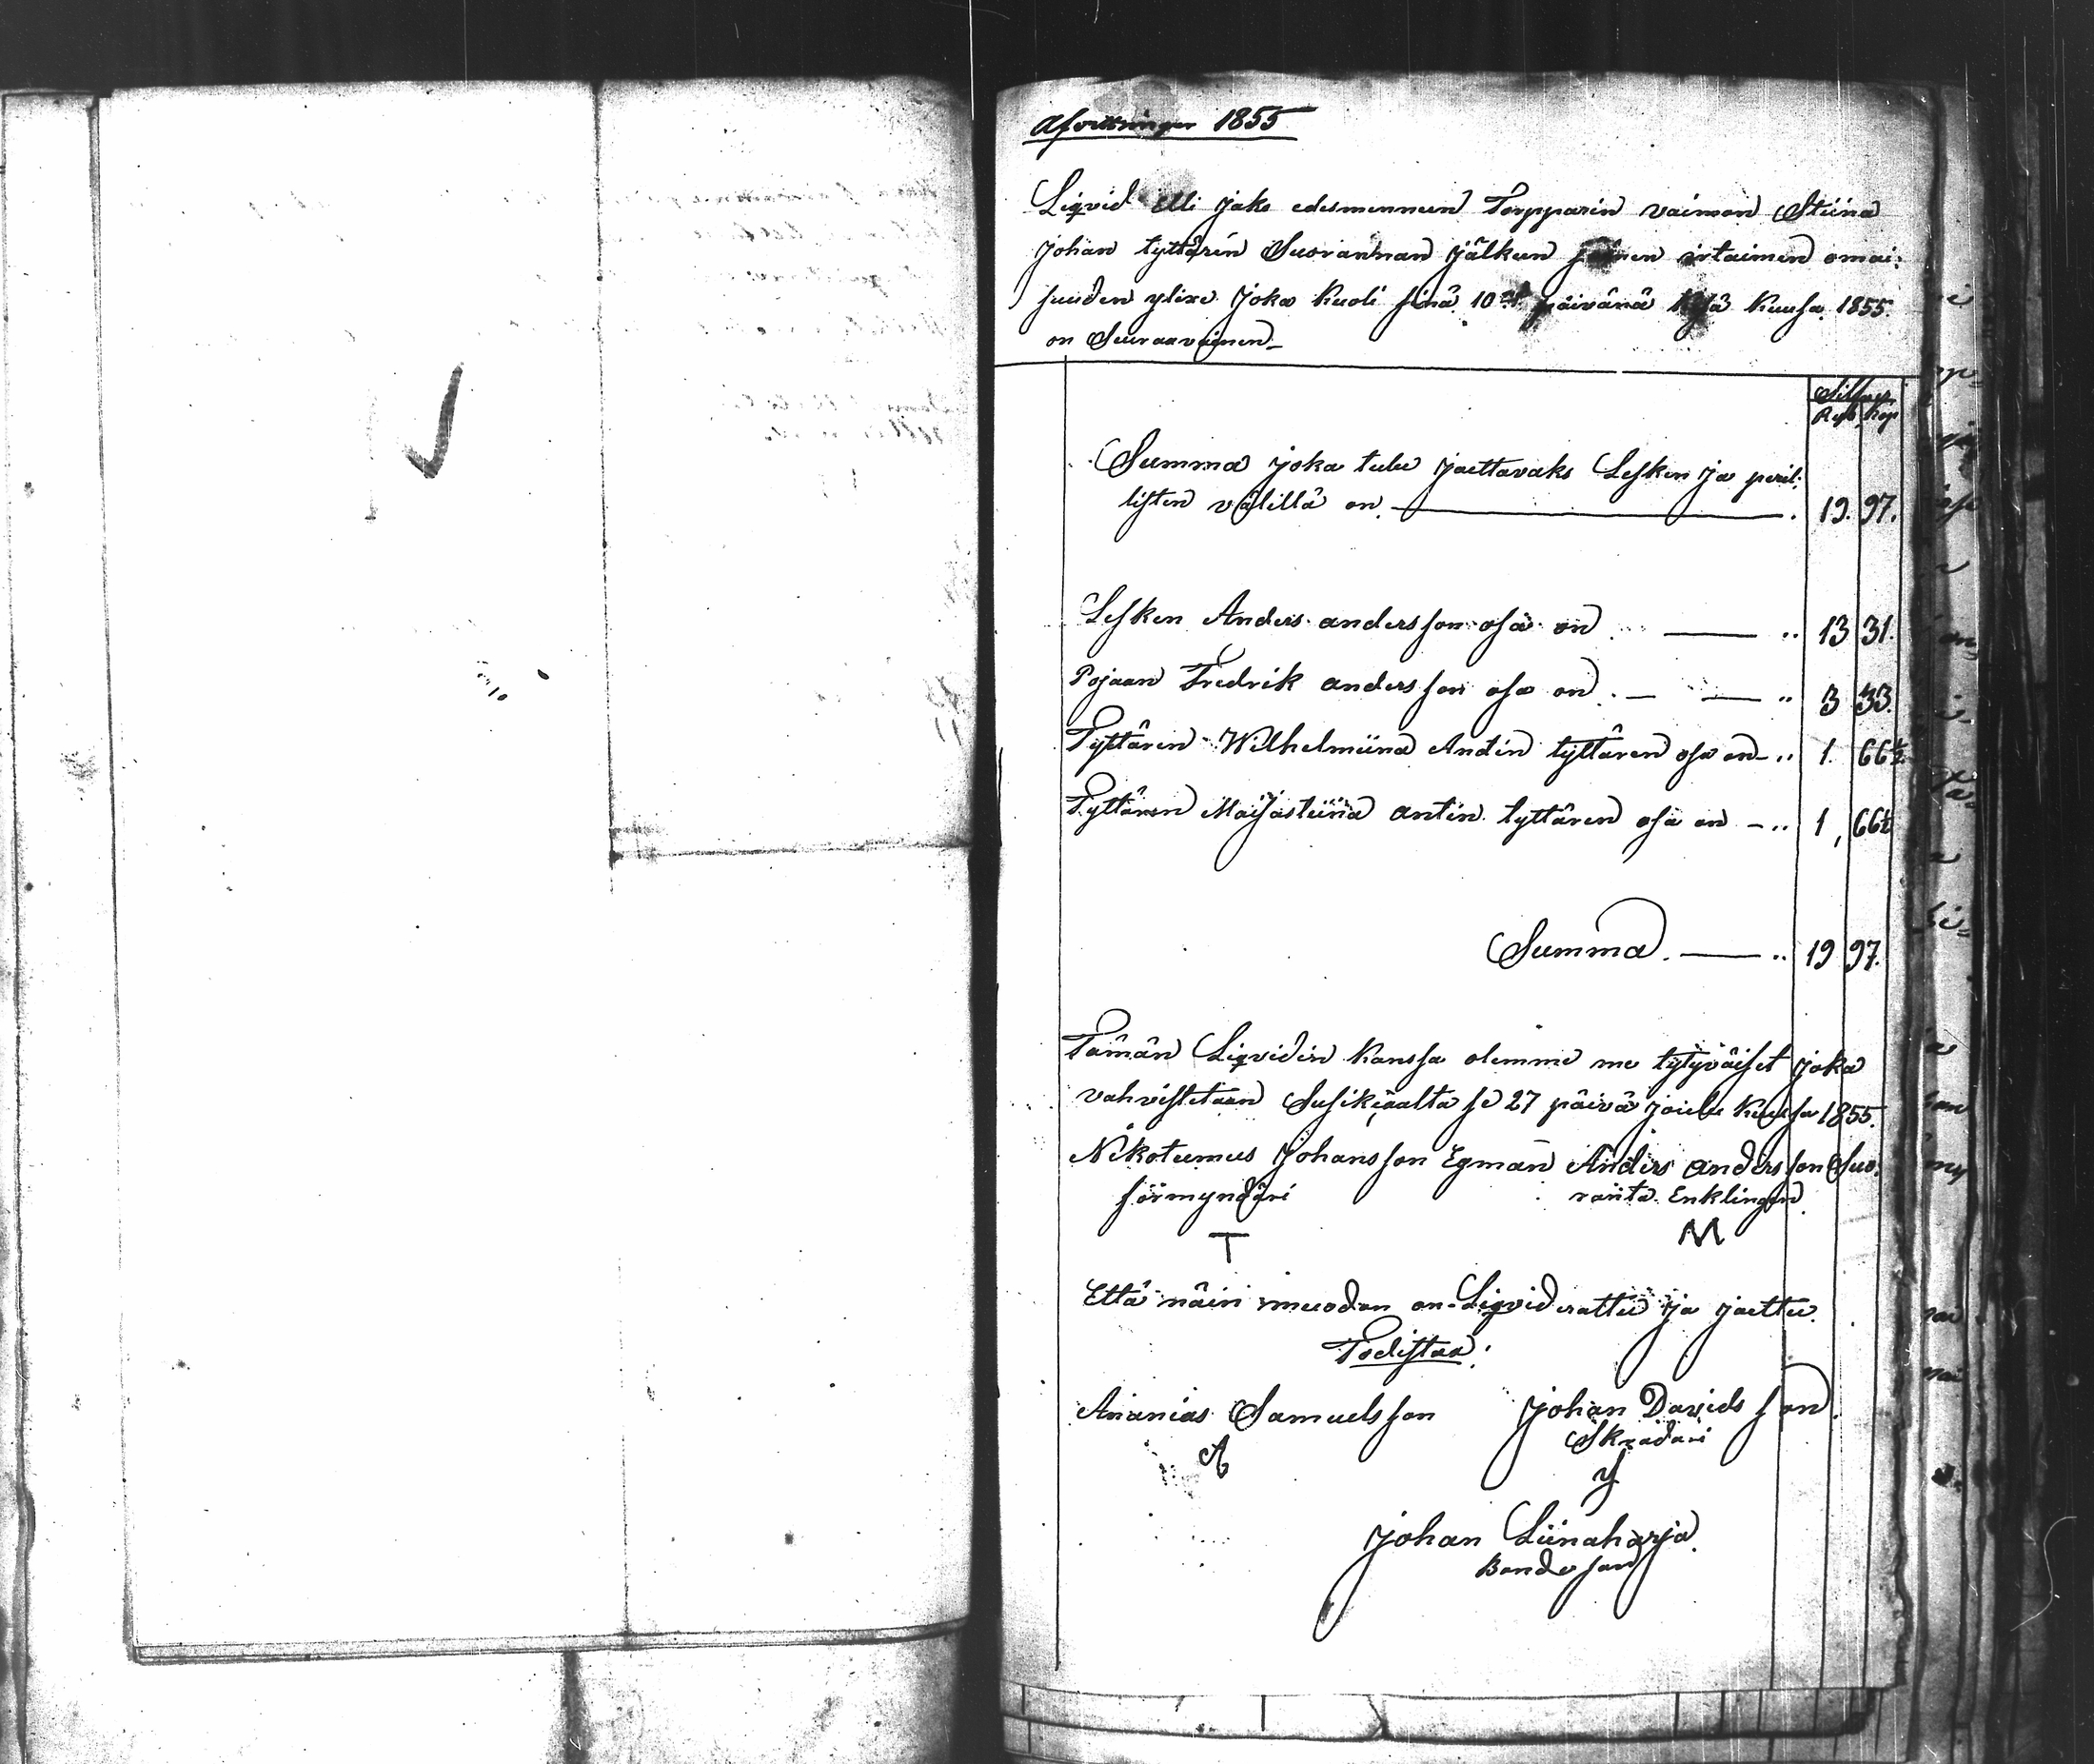 Afvittringar 1855
Liqvid Eli jako edesmenneen Torpparin vaimon Stiina
Johan tyttärin Suorannan jälkeen jäänen irtaimen omai:
suuden ylitse joka kuoli sinä 10 päivänä Kesä kuusa 1855.
on Seuraavainen
Silfver
Rub Kop
Summa joka tulee jaettavaks Lesken ja peril:
listen välillä on 19. 97.
Lesken Anders andersson osa on 13 31.
Pojaan Fredrik andersson osa on 3 33.
Tyttären Wilhelmiina Antin tyttären osa on 1. 66½
Tyttären Maijastiina antin tyttären osa on 1, 66½
Summa 19 97.
Tämän Liqvidin kanssa olemme me tytyväiset joka
vahvistetaan Susikåalta se 27 päivä joulu kuusa 1855.
Nikotemus Johansson Egman Anders andersson Suo:
förmyndäri ranta Enklingen
T M
Että näin muodon on Liqvid erattu ja jaettu.
Todistaa:
Ananias Samuelsson Johan Davidsson
Skradari
A
Johan Liinaharja
Bondeson